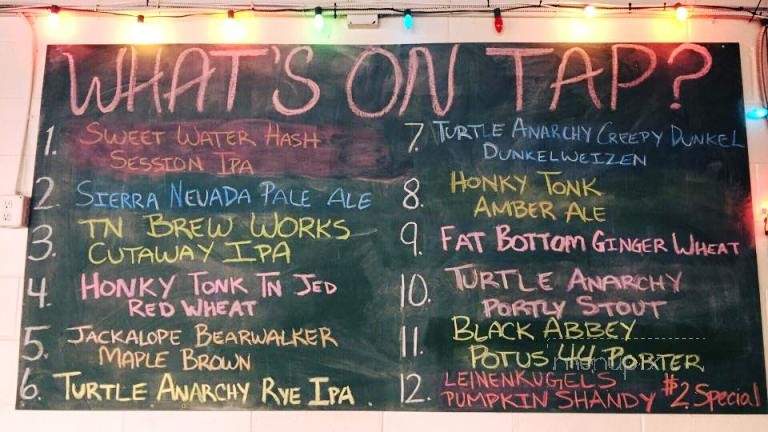 WHAT'S ON TAP?
1. SWEET WATER HASH
SESSION IPA
2. SIERRA NEVADA PALE ALE
3. TN BREW WORKS
CUTAWAY IPA
4. HONKY TONK TN JED
RED WHEAT
5. JACKALOPE BEARWALKER
MAPLE BROWN
6. TURTLE ANARCHY RYE IPA.
7. TURTLE ANARCHY CREEPY DUNKEL
DUNKELWEIZEN
8. HONKY TONK
AMBER ALE
9. FAT BOTTOM GINGER WHEAT
10. TURTLE ANARCHY
PORTLY STOUT
11. BLACK ABBEY
POTUS 44 PORTER
menupix
12. LEINENKUGEL'S
PUMPKIN SHANDY $2 Special